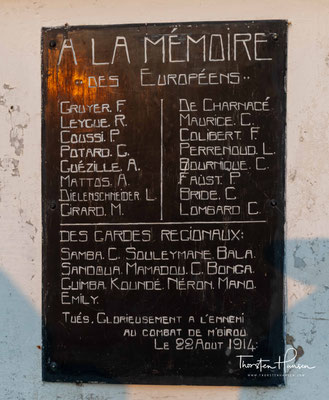 A LA MÉMOIRE
DES EUROPÉENS
GRUYER. F.
LEYGUE. R.
COUSSI. P.
POTARD. G.
GUÉZILLE. A.
MATTOS. A.
DIELENSCHNEIDER L.
GIRARD. M.
DE CHARNACÉ
MAURICE. C.
COLIBERT. F.
PERRENOUD. L.
BOURNIQUE. C.
FAÜST. P.
BRIDE. C.
LOMBARD C.
DES GARDES REGIONAUX:
SAMBA. C. SOULEYMANE. BALA.
MAMADOU. C. BONGA.
GUIMBA. KOUNDÉ. NÉRON. MANO.
EMILY.
TUÉS. GLORIEUSEMENT A L'ENNEMI
AU COMBAT DE M'BIROU.
LE 22 AOUT 1914.
Thorsten Hansen